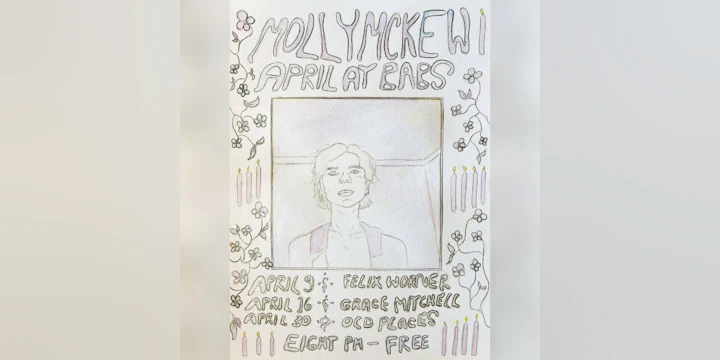 MOLLY MCKEW
APRIL AT BABS
APRIL 9 & FELIX WORNER
APRIL 16 & GRACE MITCHELL
APRIL 30 & OLD PLACES
EIGHT PM - FREE